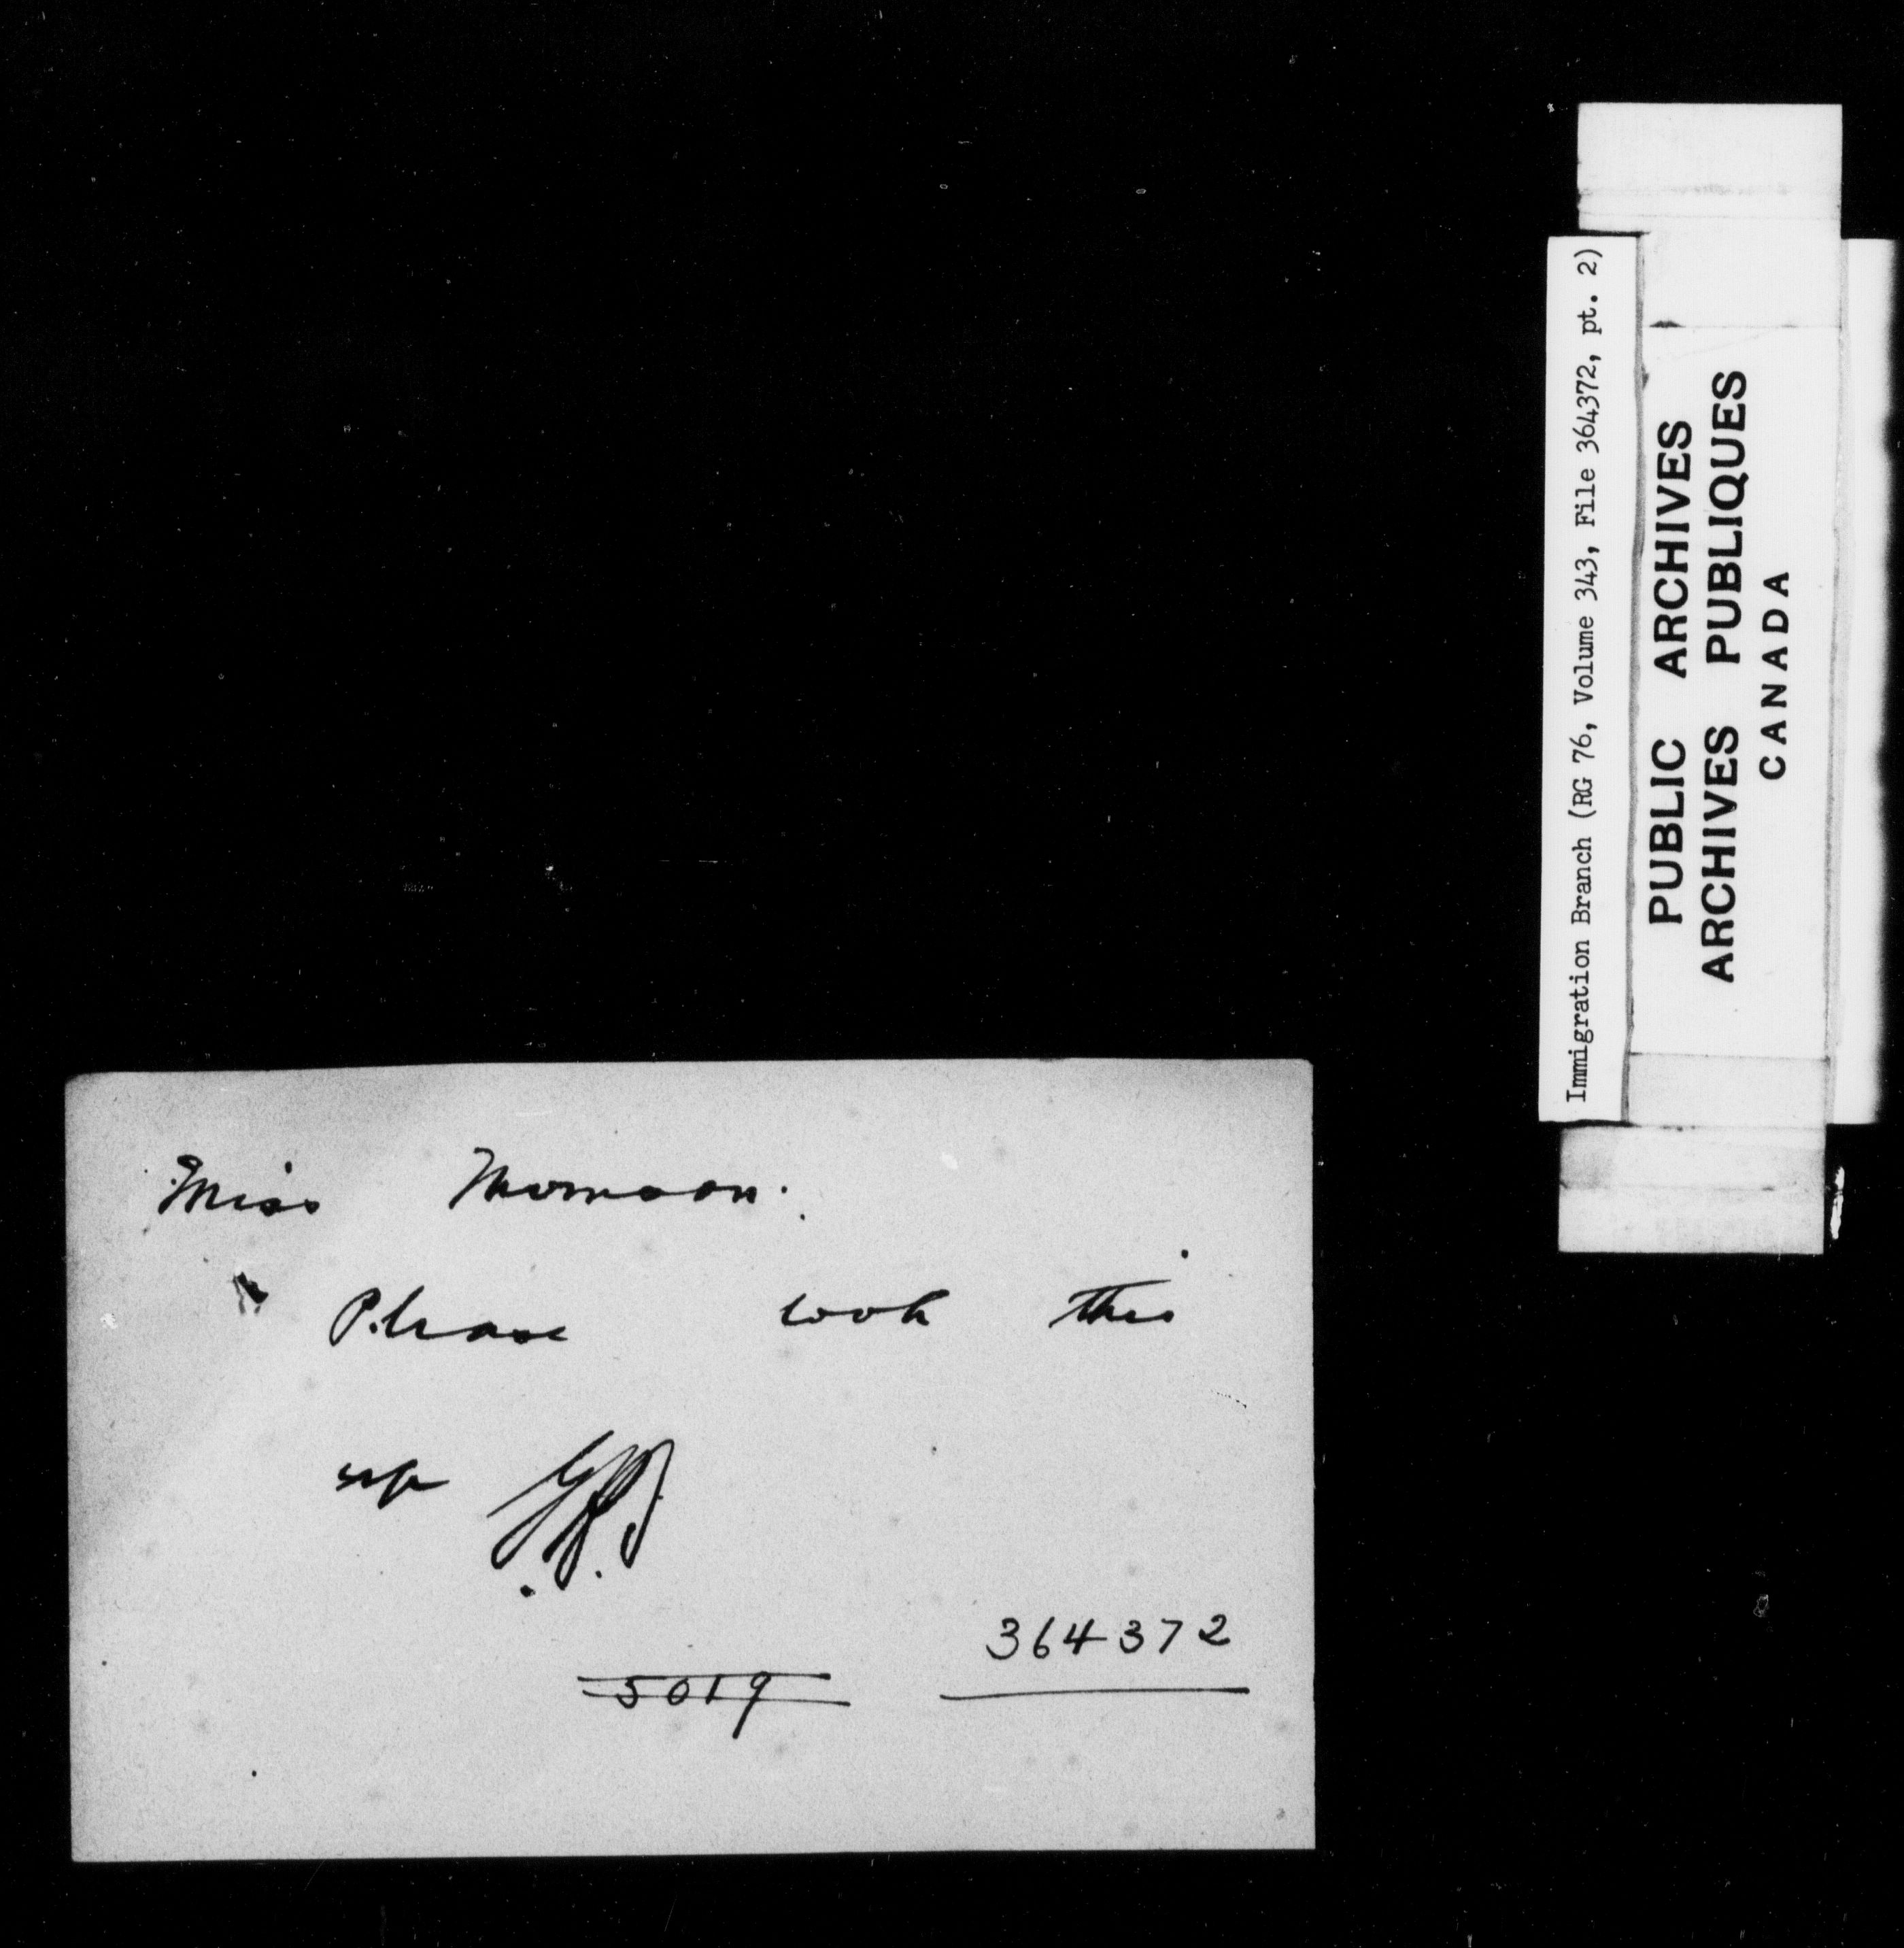 Miss Thomson.
Please look this
up
5019
364372
Immigration Branch (RG 76, Volume 343, File 364372, pt. 2)
PUBLIC ARCHIVES
ARCHIVES PUBLIQUES
CANADA